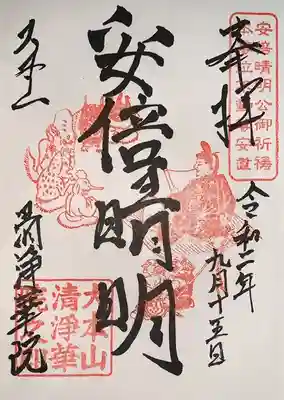 安倍晴明公御祈祷
奉拝
令和二年
九月十五日
安倍晴明
大本山
清浄華院
大本山
清浄華